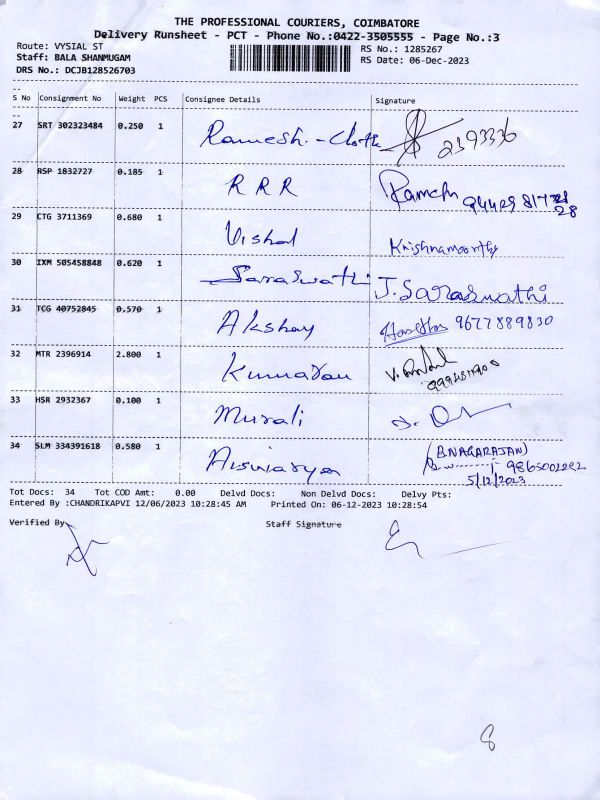 THE PROFESSIONAL COURIERS, COIMBATORE
Delivery Runsheet - PCT - Phone No.:0422-3505555 - Page No.:3
Route: VYSIAL ST RS No.: 1285267
Staff: BALA SHANMUGAM RS Date: 06-Dec-2023
DRS No.: DCJB128526703
S No Consignment No Weight PCS Consignee Details Signature
27 SRT 302323484 0.250 1 Ramesh - Cloth 2393336
28 RSP 1832727 0.185 1 R R R Ramesh
29 CTG 3711369 0.680 1 Vishal Krishnamoorthy
30 IXM 505458848 0.620 1 Saraswathi J. Saraswathi
31 TCG 40752845 0.570 1 Akshay 9677889830
32 MTR 2396914 2.800 1 Kumaran
33 HSR 2932367 0.100 1 Murali
34 SLM 334391618 0.580 1 Aiswarya (B.NAGARAJAN)
5/12/2023
Tot Docs: 34 Tot COD Amt: 0.00 Delvd Docs: Non Delvd Docs: Delvy Pts:
Entered By :CHANDRIKAPVI 12/06/2023 10:28:45 AM Printed On: 06-12-2023 10:28:54
Verified By Staff Signature
8